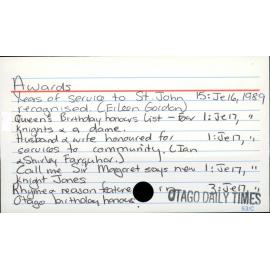 Awards
Years of service to St. John 15: Je 16, 1989
recognised. (Eileen Gordon)
Queen's Birthday honours list - four 1: Je 17, "
Knights & a dame.
Husband & wife honoured for 1: Je 17, "
services to community. (Ian
& Shirley Farquhar.)
Call me Sir Margaret says new 1: Je 17, "
Knight Jones
Rhyme & reason feature 3: Je 17, "
Otago birthday honours
OTAGO DAILY TIMES